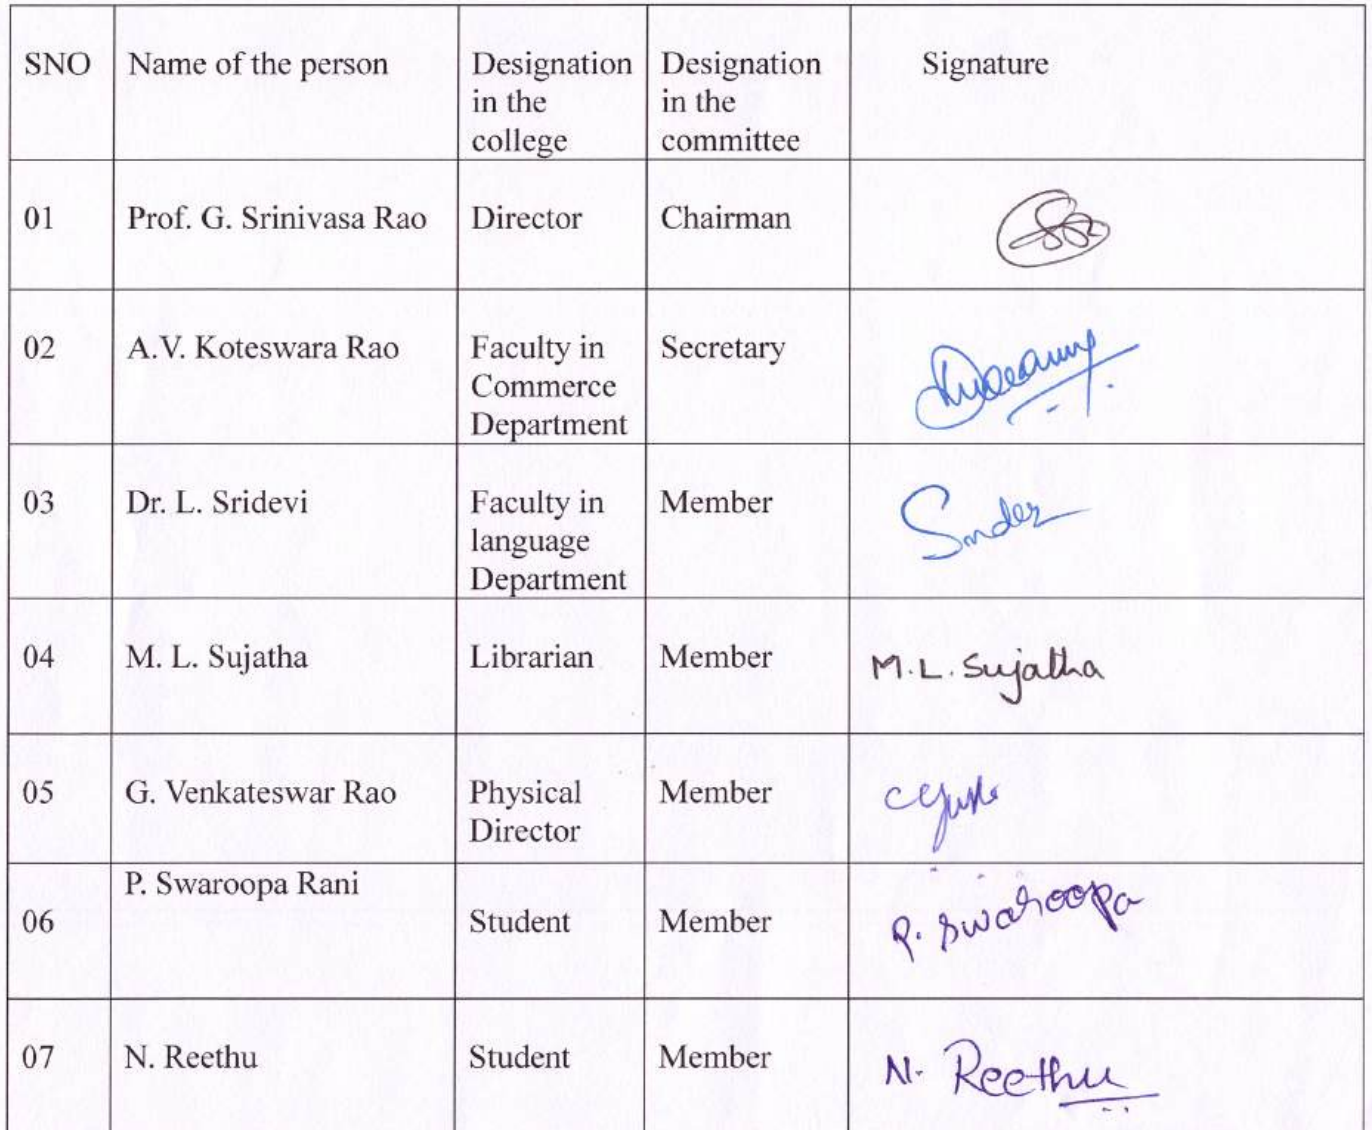 SNO Name of the person Designation in the college Designation in the committee Signature
01 Prof. G. Srinivasa Rao Director Chairman
02 A.V. Koteswara Rao Faculty in Commerce Department Secretary
03 Dr. L. Sridevi Faculty in language Department Member
04 M. L. Sujatha Librarian Member M.L. Sujatha
05 G. Venkateswar Rao Physical Director Member
06 P. Swaroopa Rani Student Member P. Swaroopa
07 N. Reethu Student Member N. Reethu